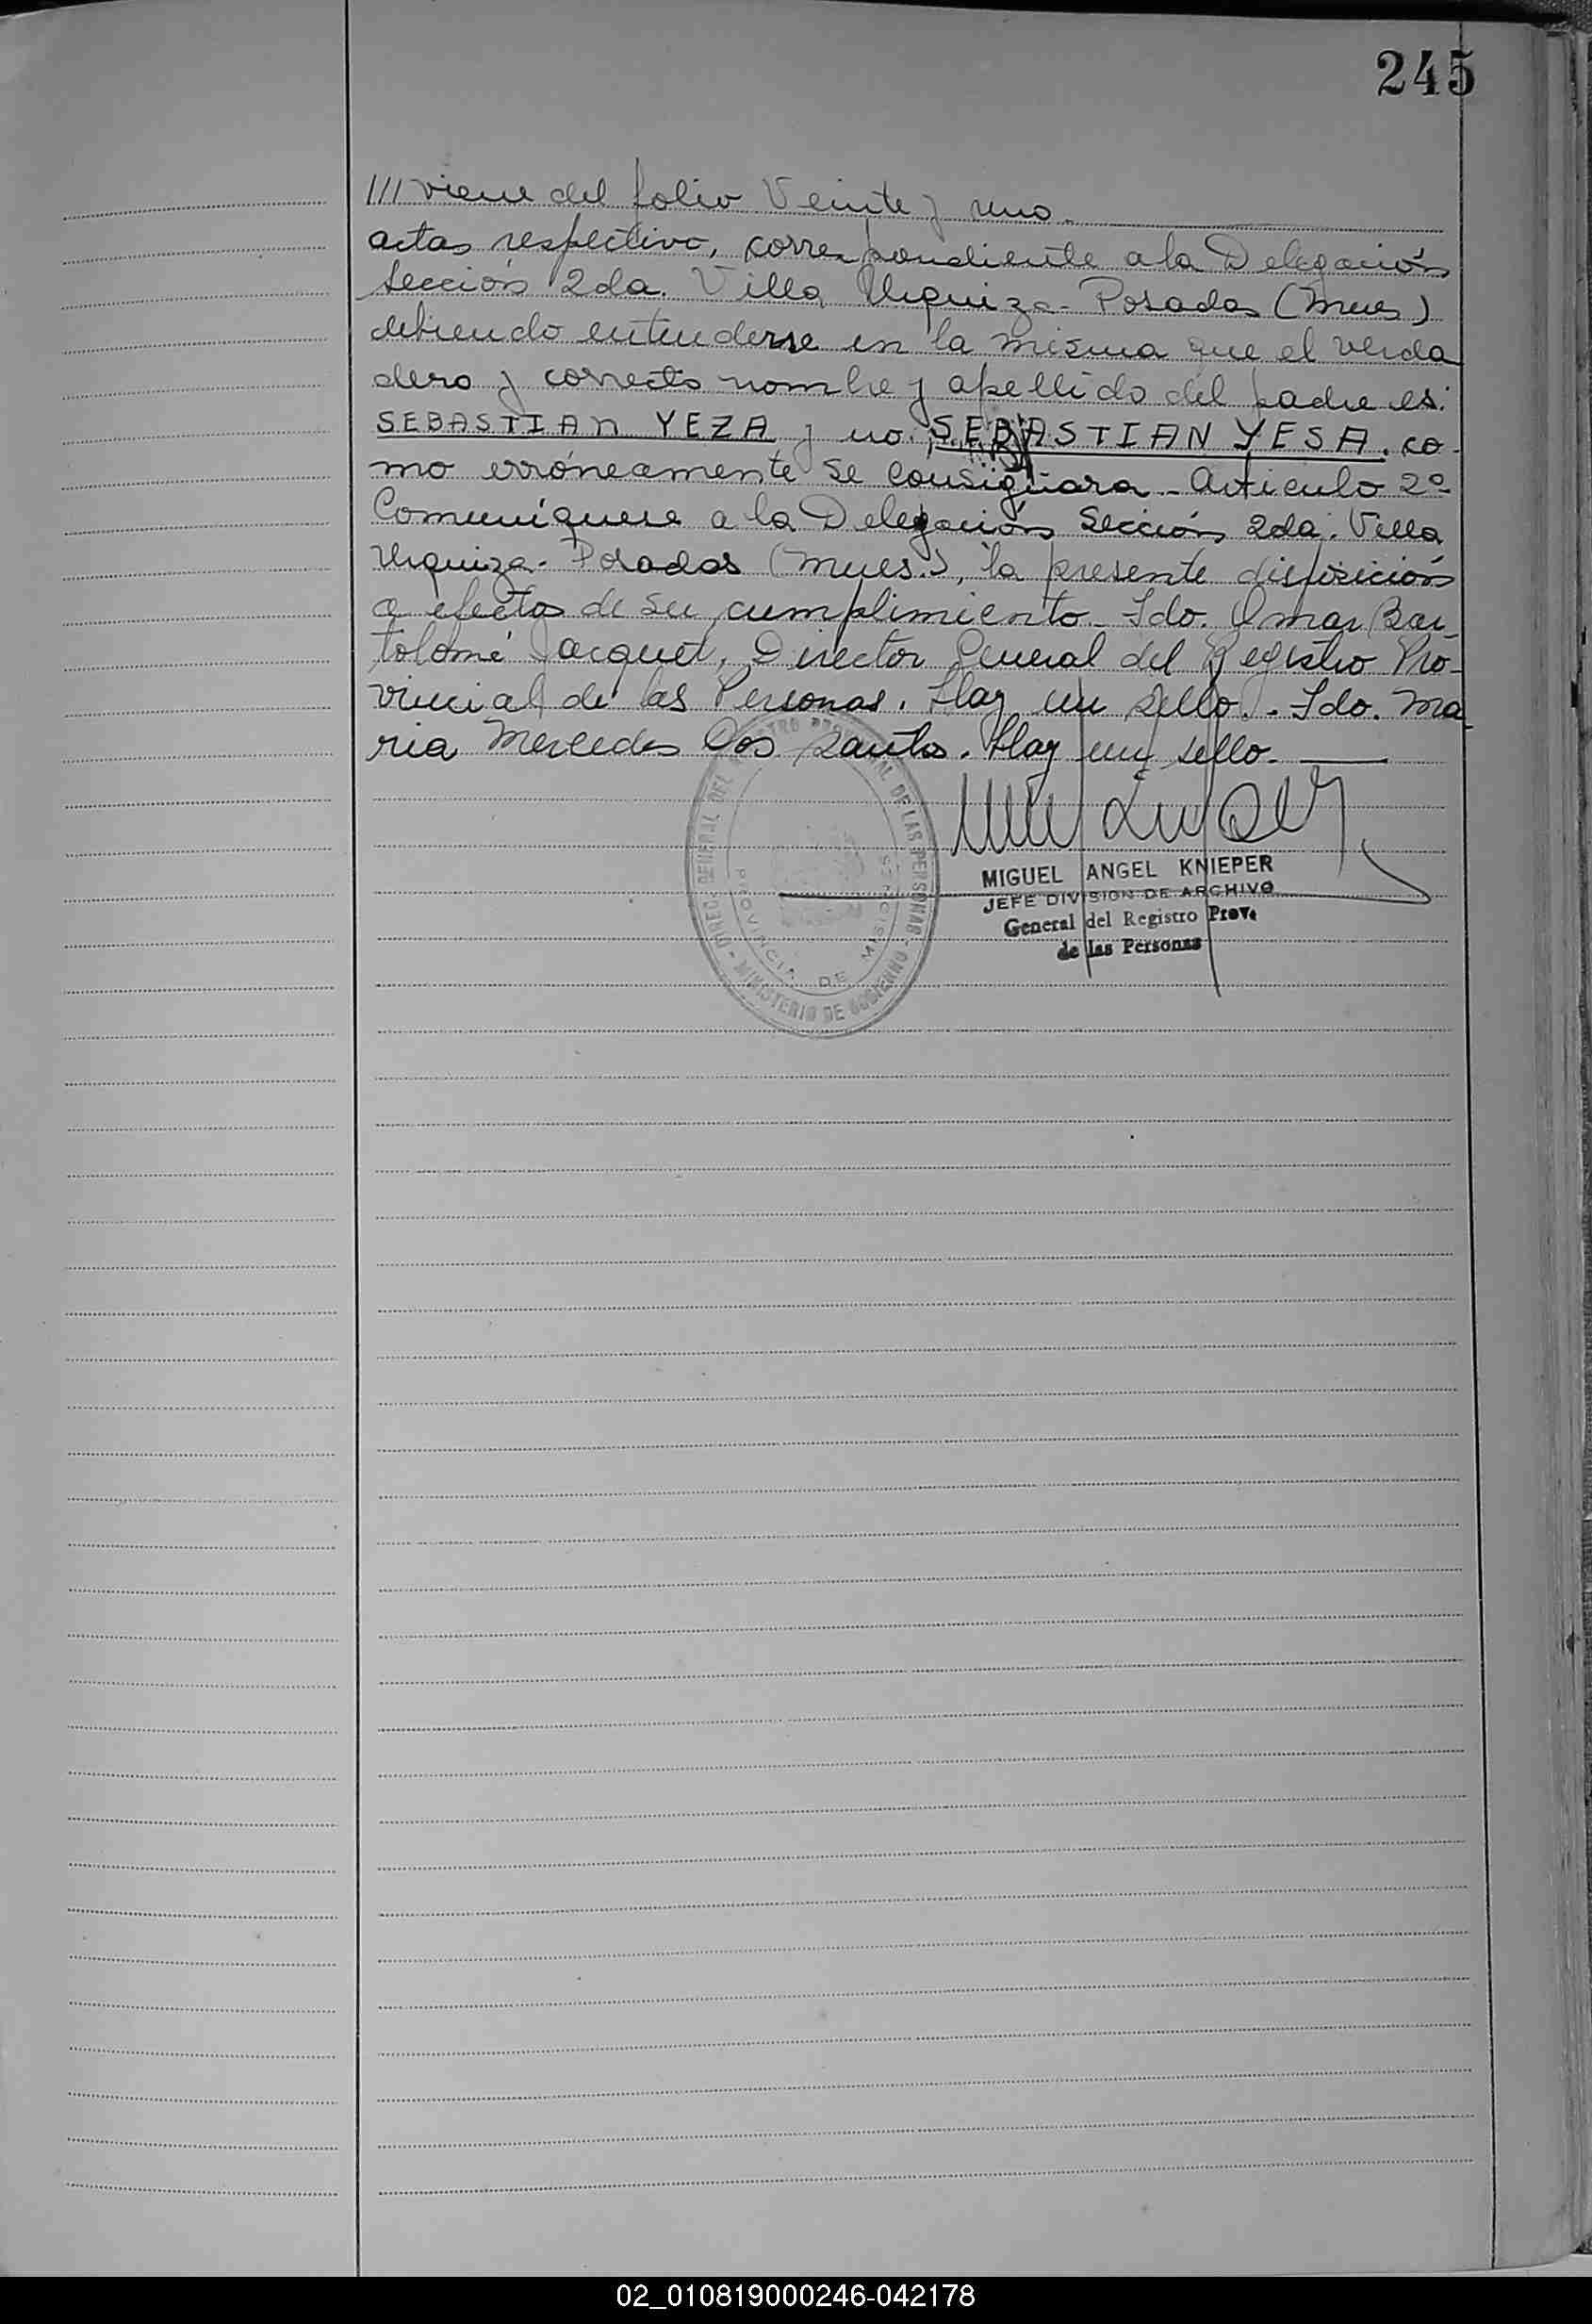 245
/// viene del folio Veinte y uno.
actas respectivo, correspondiente a la Delegación
Sección 2da. Villa Urquiza - Posadas (Mnes)
debiendo entenderse en la misma que el verda
dero y correcto nombre y apellido del padre es:
SEBASTIAN YEZA y no SEBASTIAN YESA. co-
mo erróneamente se consignara - Artículo 2º
Comuníquese a la Delegación Sección 2da. Villa
Urquiza - Posadas (Mnes.), la presente disposición
a efectos de su cumplimiento - Fdo. Omar Bar-
tolomé Jacquet, Director General del Registro Pro-
vincial de las Personas. Hay un sello. - Fdo. Ma-
ria Mercedes Dos Santos. Hay un sello.
DIREC. GENERAL DEL REGISTRO PROVINCIAL DE LAS PERSONAS - MINISTERIO DE GOBIERNO -
PROVINCIA DE MISIONES
MIGUEL ANGEL KNIEPER
JEFE DIVISION DE ARCHIVO
General del Registro Prov.
de las Personas
02_010819000246-042178